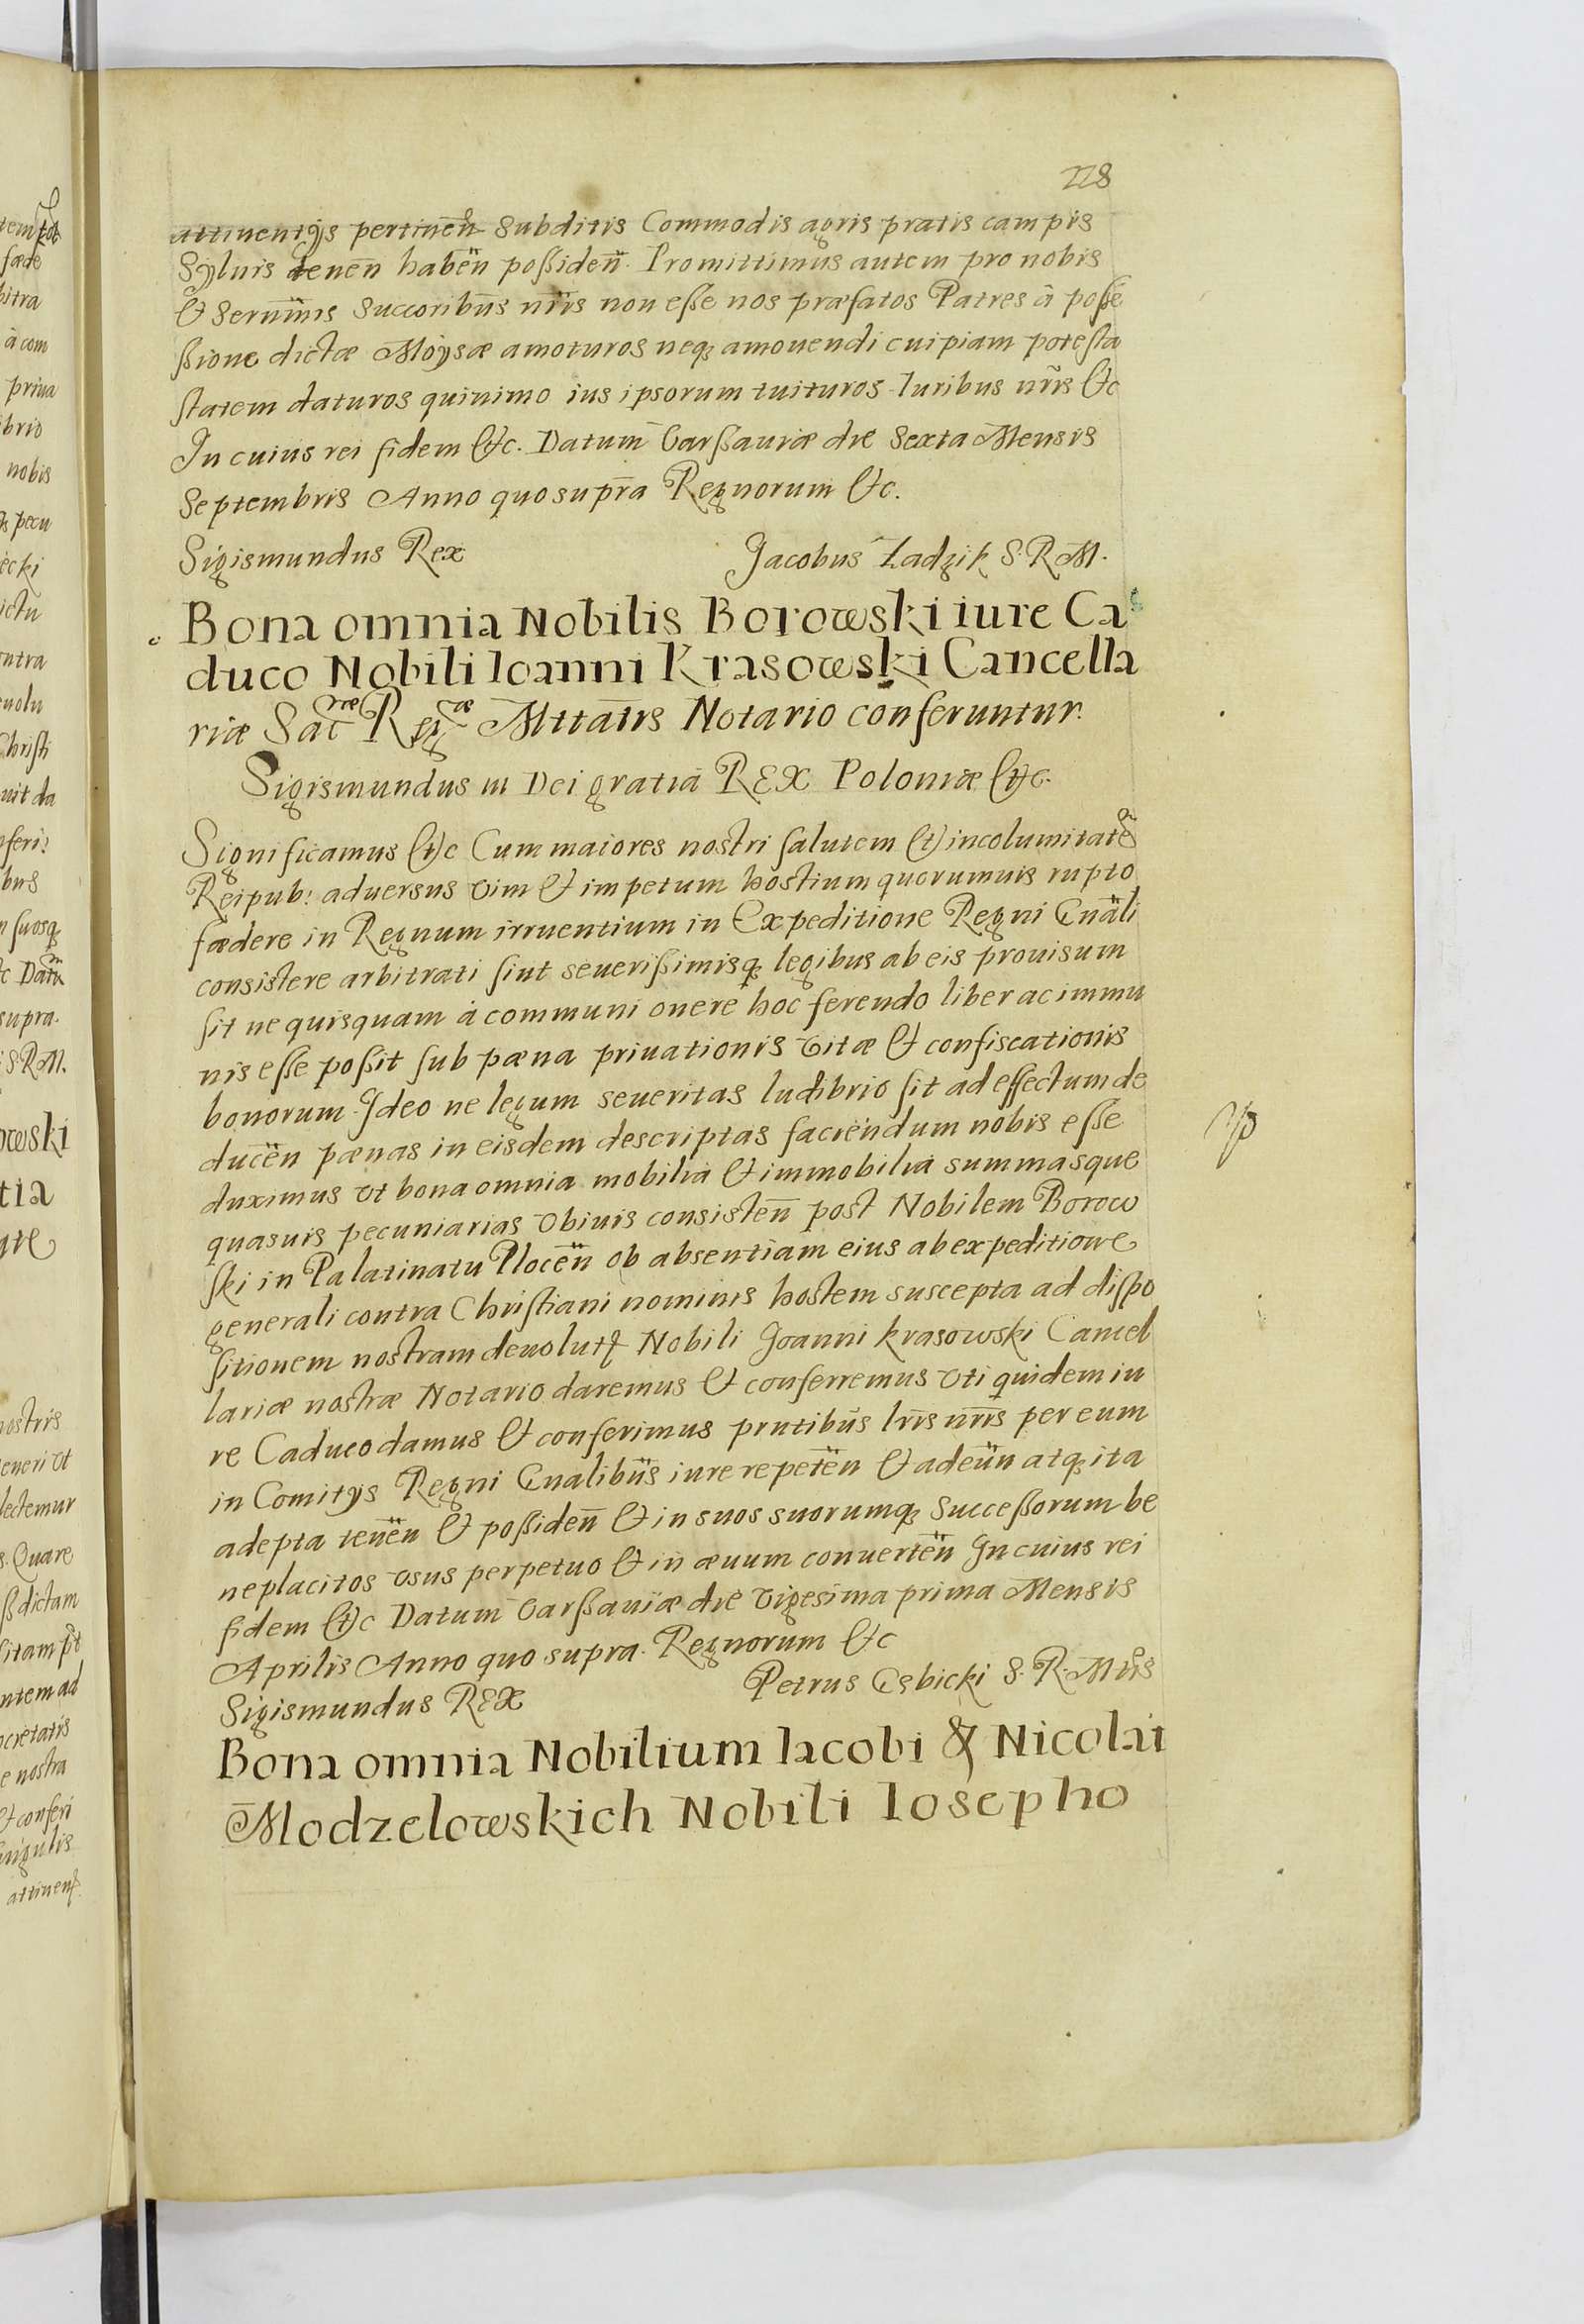 228
attinentijs pertinen̄ Subditis Commodis agris pratis campis
Syluis tenen̄ haben̄ poßiden̄. Promittimus autem pro nobis
& Serēnmis Succoribūs nr̄is non eße nos præfatos Patres â poße
ßione dictæ Moÿsæ amoturos neq; amouendi cuipiam potesta
statem daturos quinimo ius ipsorum tuituros Iuribus nr̄is &c
In cuius rei fidem &c. Datum Varßauiæ die Sexta Mensis
Septembris Anno quo supra Regnorum &c.
Sigismundus Rex
Jacobus Zadzik S. R. M.
Bona omnia Nobilis Borowski iure Ca
duco Nobili Ioanni Krasowski Cancella
riæ Sacræ Regæ Mttatis Notario conferuntur.
Sigismundus III Dei gratiâ REX Poloniæ &c.
Significamus &c Cum maiores nostri salutem & incolumitatē
Reipub: aduersus vim & impetum hostium quorumuis rupto
fædere in Regnum irruentium in Expeditione Regni Gnāli
consistere arbitrati sint seuerißimisq; legibus ab eis prouisum
sit ne quisquam à communi onere hoc ferendo liber ac immu
nis eße poßit sub pæna priuationis vitæ & confiscationis
bonorum. Ideo ne legum seueritas ludibrio sit ad effectum de
ducen̄ pænas in eisdem descriptas faciendum nobis eße
duximus vt bona omnia mobilia & immobilia summasque
quasuis pecuniarias vbiuis consisten̄ post Nobilem Borow
ski in Palatinatu Plocen̄ ob absentiam eius ab expeditione
generali contra Christiani nominis hostem suscepta ad dispo
sitionem nostram deuoluta Nobili Joanni Krasowski Cancel
lariæ nostræ Notario daremus & conferremus vti quidem iu
re Caduco damus & conferimus pr̄ntibūs lr̄is nr̄is per eum
in Comitijs Regni Gnalibūs iure repeten̄ & adeūn atq; ita
adepta tenen̄ & poßiden̄ & in suos suorumq; Succeßorum be
neplacitos vsus perpetuo & in æuum conuerten̄ In cuius rei
fidem &c Datum Varßauiæ die Vigesima prima Mensis
Aprilis Anno quo supra. Regnorum &c
Petrus Gębicki S. R. Mttis
Sigismundus REX
Bona omnia Nobilium Iacobi & Nicolai
Modzelowskich Nobili Iosepho